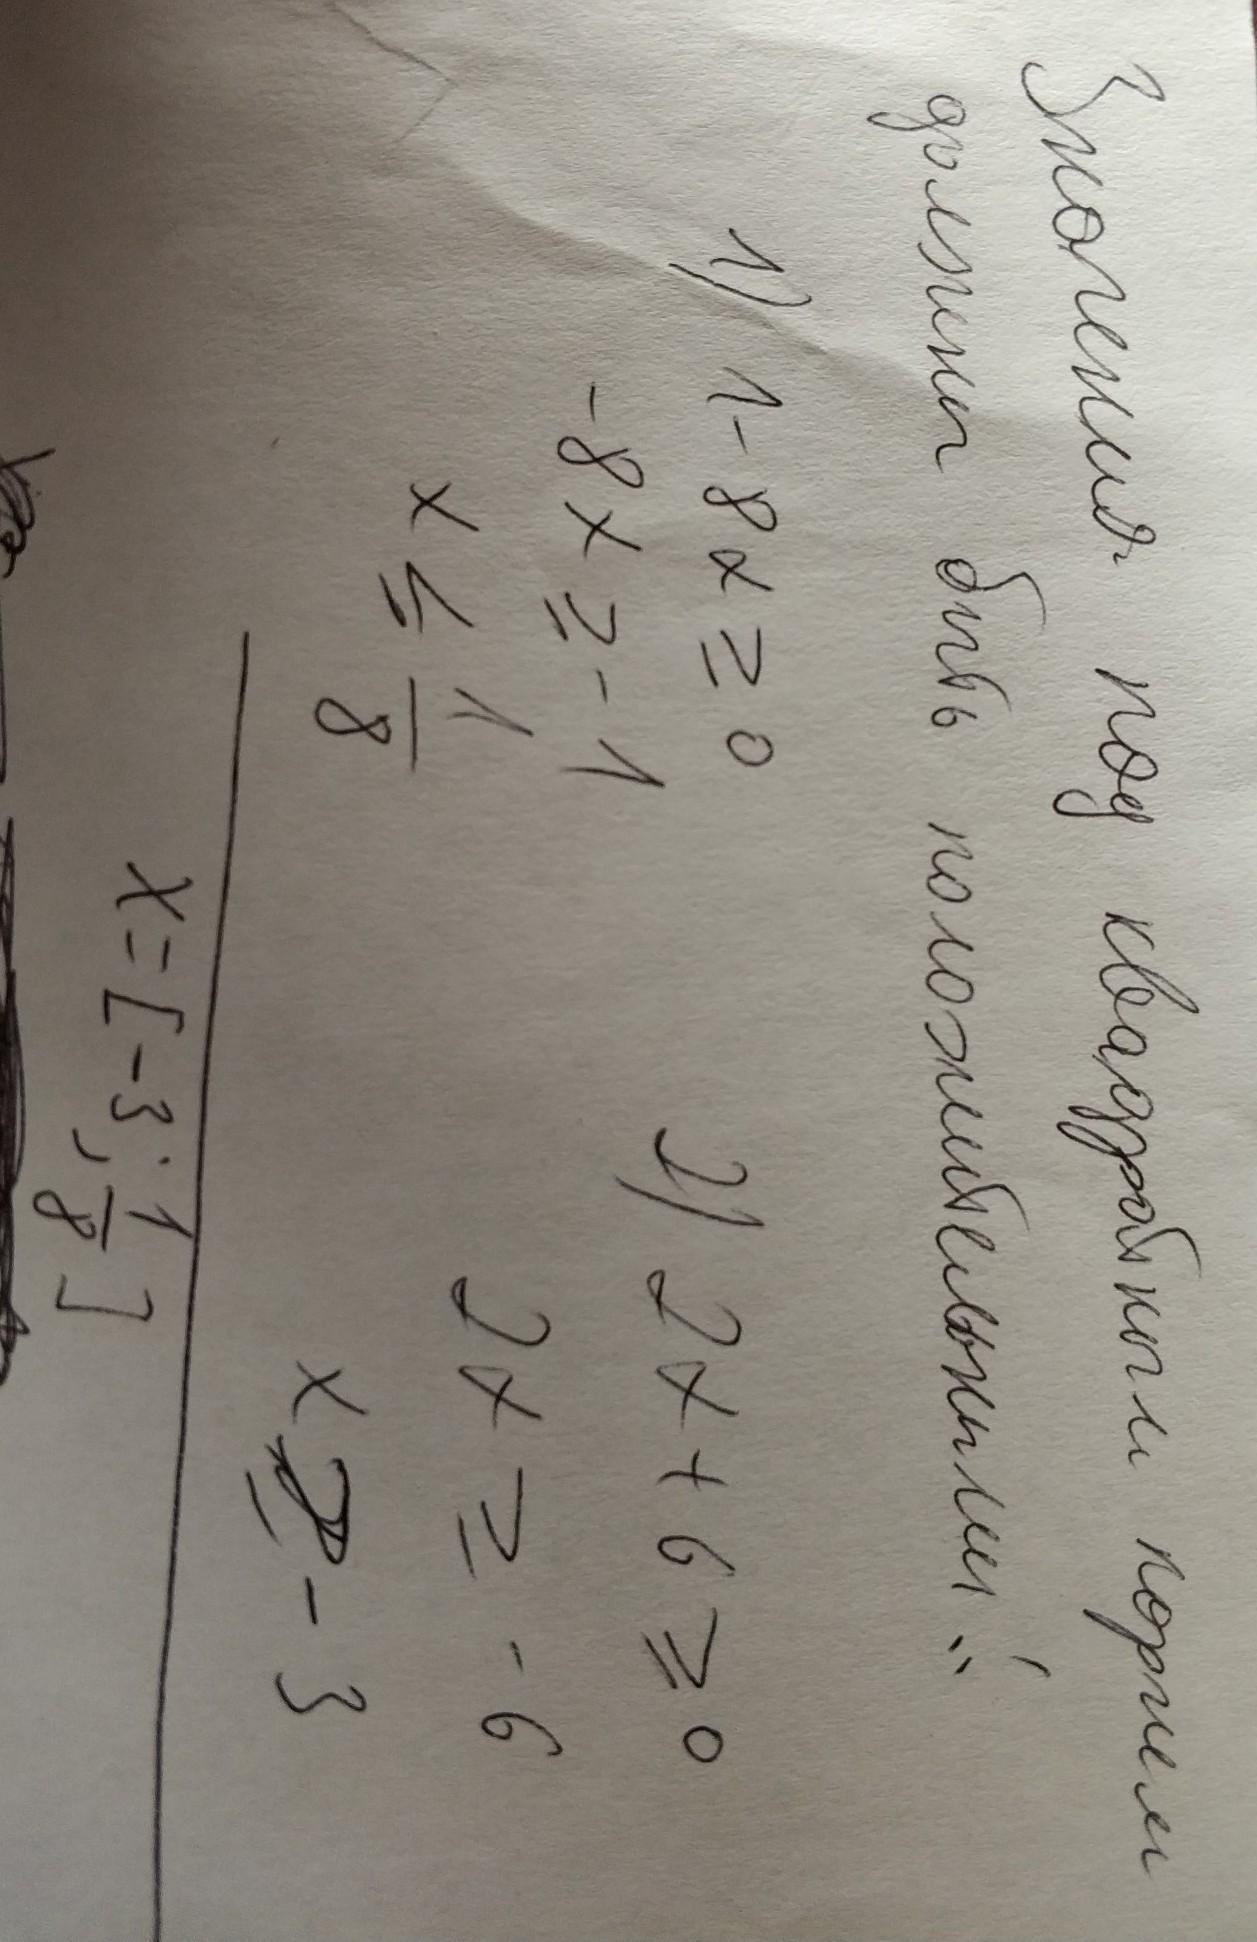 Значения под квадратным корнем
должны быть положительными:
1) 1-8x ≥ 0
-8x ≥ -1
x ≤ 1/8
2) 2x+6 ≥ 0
2x ≥ -6
x ≥ -3
x=[-3; 1/8]